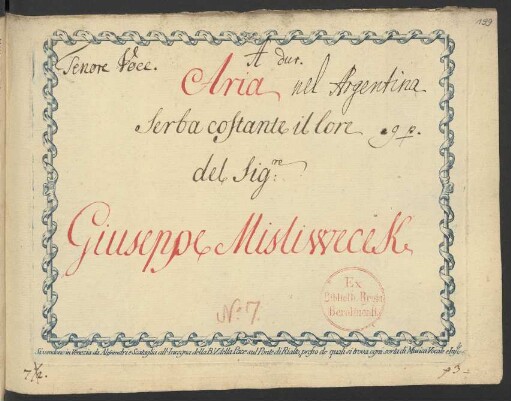 199
Tenore Voce.
A dur.
Aria nel Argentina
Serba costante il core
del Sig.re
Giuseppe Misliwecek
No. 7.
Ex
Biblioth. Regia
Berolinensi.
Si vendono in Venezia da Alessandri e Scataglia all' Insegna della B.V. della Pace sul Ponte di Rialto, presso de quali si trova ogni sorta di Musica Vocale e